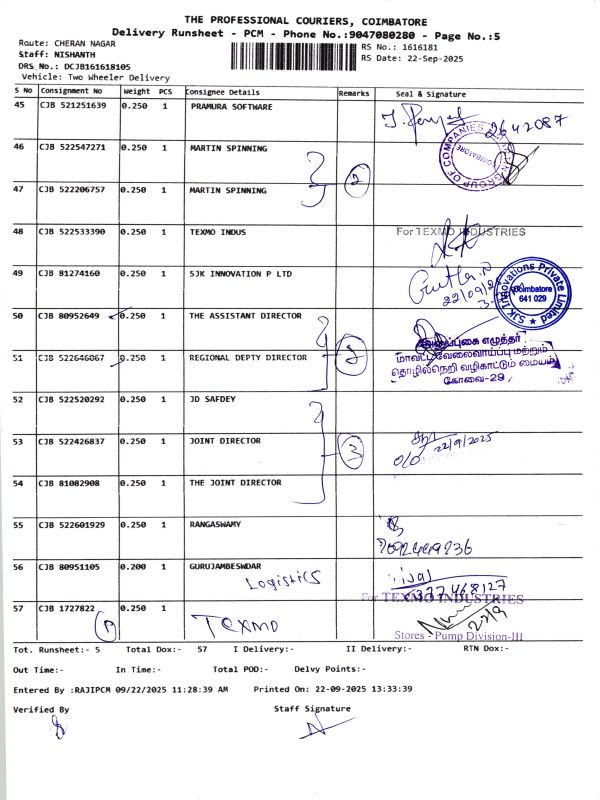 THE PROFESSIONAL COURIERS, COIMBATORE
Delivery Runsheet - PCM - Phone No.:9047080280 - Page No.:5
Route: CHERAN NAGAR
Staff: NISHANTH
DRS No.: DCJB161618105
Vehicle: Two Wheeler Delivery
RS No.: 1616181
RS Date: 22-Sep-2025
S No Consignment No Weight PCS Consignee Details Remarks Seal & Signature
45 CJB 521251639 0.250 1 PRAMURA SOFTWARE
2642087
46 CJB 522547271 0.250 1 MARTIN SPINNING
2
GROUP OF COMPANIES
COIMBATORE
47 CJB 522206757 0.250 1 MARTIN SPINNING
48 CJB 522533390 0.250 1 TEXMO INDUS For TEXMO INDUSTRIES
49 CJB 81274160 0.250 1 SJK INNOVATION P LTD
SJK Innovations Private Limited
Coimbatore
641 029
50 CJB 80952649 0.250 1 THE ASSISTANT DIRECTOR
2
51 CJB 522646067 0.250 1 REGIONAL DEPTY DIRECTOR
மாவட்ட வேலைவாய்ப்பு மற்றும்
தொழில்நெறி வழிகாட்டும் மையம்
கோவை-29
52 CJB 522520292 0.250 1 JD SAFDEY
53 CJB 522426837 0.250 1 JOINT DIRECTOR 3 22/9/2025
54 CJB 81082908 0.250 1 THE JOINT DIRECTOR
55 CJB 522601929 0.250 1 RANGASWAMY
56 CJB 80951105 0.200 1 GURUJAMBESWDAR
Logistics
For TEXMO INDUSTRIES
57 CJB 1727822 0.250 1 TEXMO
22/9
Stores - Pump Division-III
Tot. Runsheet:- 5 Total Dox:- 57 I Delivery:- II Delivery:- RTN Dox:-
Out Time:- In Time:- Total POD:- Delvy Points:-
Entered By :RAJIPCM 09/22/2025 11:28:39 AM Printed On: 22-09-2025 13:33:39
Verified By Staff Signature